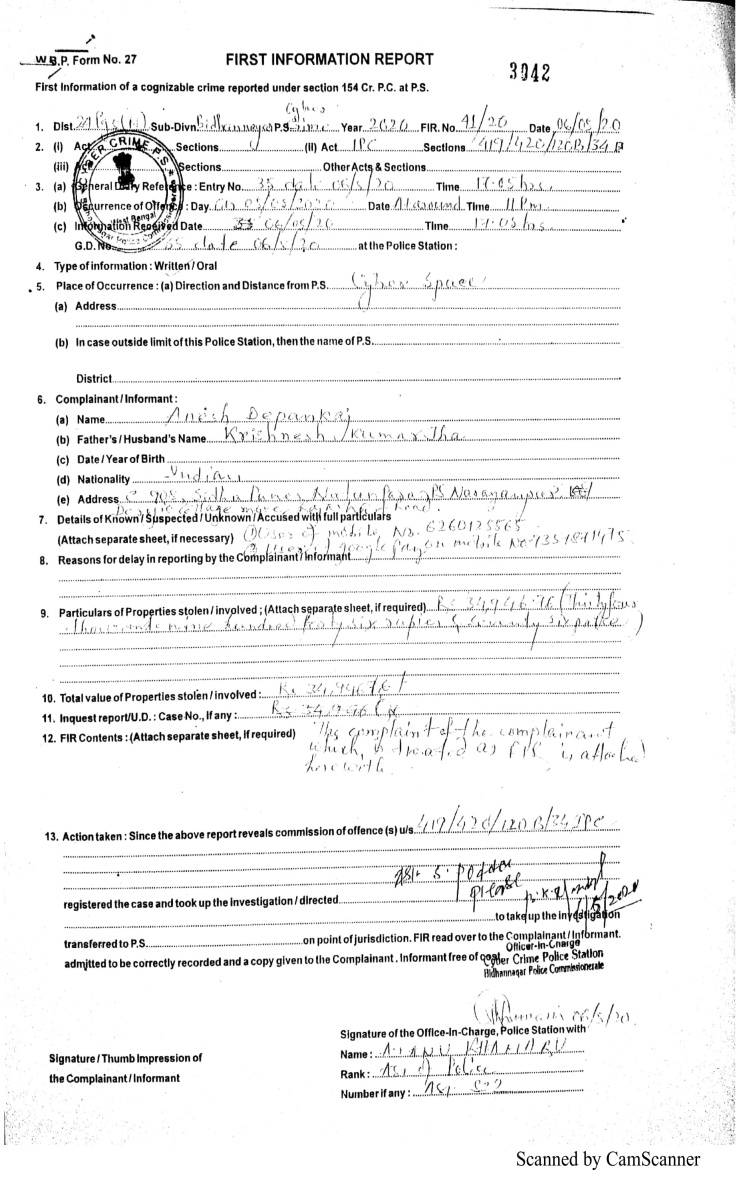 W.B.P. Form No. 27
FIRST INFORMATION REPORT
3042
First Information of a cognizable crime reported under section 154 Cr. P.C. at P.S.
1. Dist. 24 Pgs (N) Sub-Divn. Bidhannagar P.S. Cyber Crime Year 2020 FIR. No. 41/20 Date 06/05/20
2. (i) Act Sections (II) Act IPC Sections 419/420/120B/34
(iii) Sections Other Acts & Sections
3. (a) General Diary Reference : Entry No. 35 date 06/5/20 Time 17.05 hrs
(b) Occurrence of Offence : Day On 05/05/2020 Date At around Time 11 Pm
(c) Information Received Date 35 06/05/20 Time 17.05 hrs
G.D. No. 35 date 06/5/20 at the Police Station :
CYBER CRIME P.S.
West Bengal
4. Type of information : Written / Oral
5. Place of Occurrence : (a) Direction and Distance from P.S. Cyber Space
(a) Address
(b) In case outside limit of this Police Station, then the name of P.S.
District
6. Complainant / Informant :
(a) Name Anish Depankaj
(b) Father's / Husband's Name Krishnesh Kumar Jha
(c) Date / Year of Birth
(d) Nationality Indian
(e) Address Narayanpur
7. Details of Known / Suspected / Unknown / Accused with full particulars
(Attach separate sheet, if necessary) (1) User of mobile No. 6260125565
google pay on mobile No
8. Reasons for delay in reporting by the Complainant / Informant
9. Particulars of Properties stolen / involved ; (Attach separate sheet, if required) Rs 34,946.76 (Thirty four
thousand nine hundred forty six rupies & seventy six paise)
10. Total value of Properties stolen / involved : Rs 34,946.76
11. Inquest report/U.D. : Case No., If any :
12. FIR Contents : (Attach separate sheet, if required) The complaint of the complainant
which is treated as FIR is attached
herewith
13. Action taken : Since the above report reveals commission of offence (s) u/s. 419/420/120B/34 IPC
S. Poddar
Please
registered the case and took up the Investigation / directed
to take up the investigation
transferred to P.S. on point of jurisdiction. FIR read over to the Complainant / Informant.
admitted to be correctly recorded and a copy given to the Complainant . Informant free of cost
Officer-In-Charge
Cyber Crime Police Station
Bidhannagar Police Commissionerate
06/5/20
Signature of the Office-In-Charge, Police Station with
Signature / Thumb Impression of
the Complainant / Informant
Name :
Rank : ASI of Police
Number if any : ASI
Scanned by CamScanner